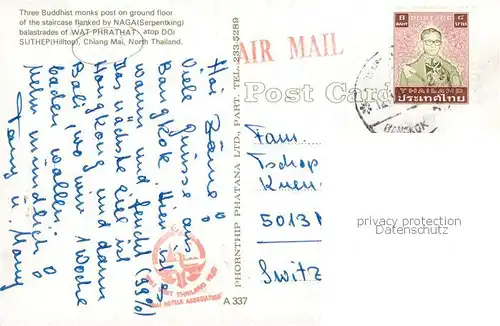 Three Buddhist monks post on ground floor
of the staircase flanked by NAGA(Serpentking)
balastrades of WAT PHRATHAT atop DOi
SUTHEP(Hilltop), Chiang Mai, North Thailand.
Hai Zäme
Viele Grüsse aus
Bangkok. Hier ist es
warm und feucht (99%)
Das nächste Ziel ist
Hongkong und dann
Bali, wo wir 1 Woche
baden wollen.
mündlich
u.
PHORNTHIP PHATANA LTD., PART. TEL. 233-5289
A 337
AIR MAIL
Post Card
8
BAHT
POSTAGE
THAILAND
ประเทศไทย
BANGKOK
Fam.
Tschop
5013
Switz
privacy protection
Datenschutz
THAI HOTELS ASSOCIATION